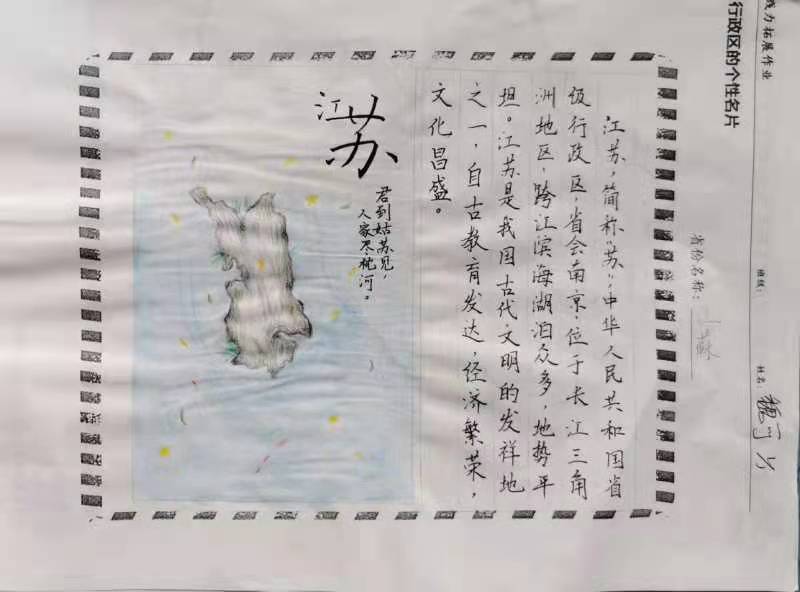 力拓展作业
行政区的个性名片
班级：
姓名：魏
省份名称：
江苏，简称“苏”，中华人民共和国省
级行政区，省会南京，位于长江三角
洲地区，跨江滨海湖泊众多，地势平
坦。江苏是我国古代文明的发祥地
之一，自古教育发达，经济繁荣，
文化昌盛。
江苏
君到姑苏见，
人家尽枕河。